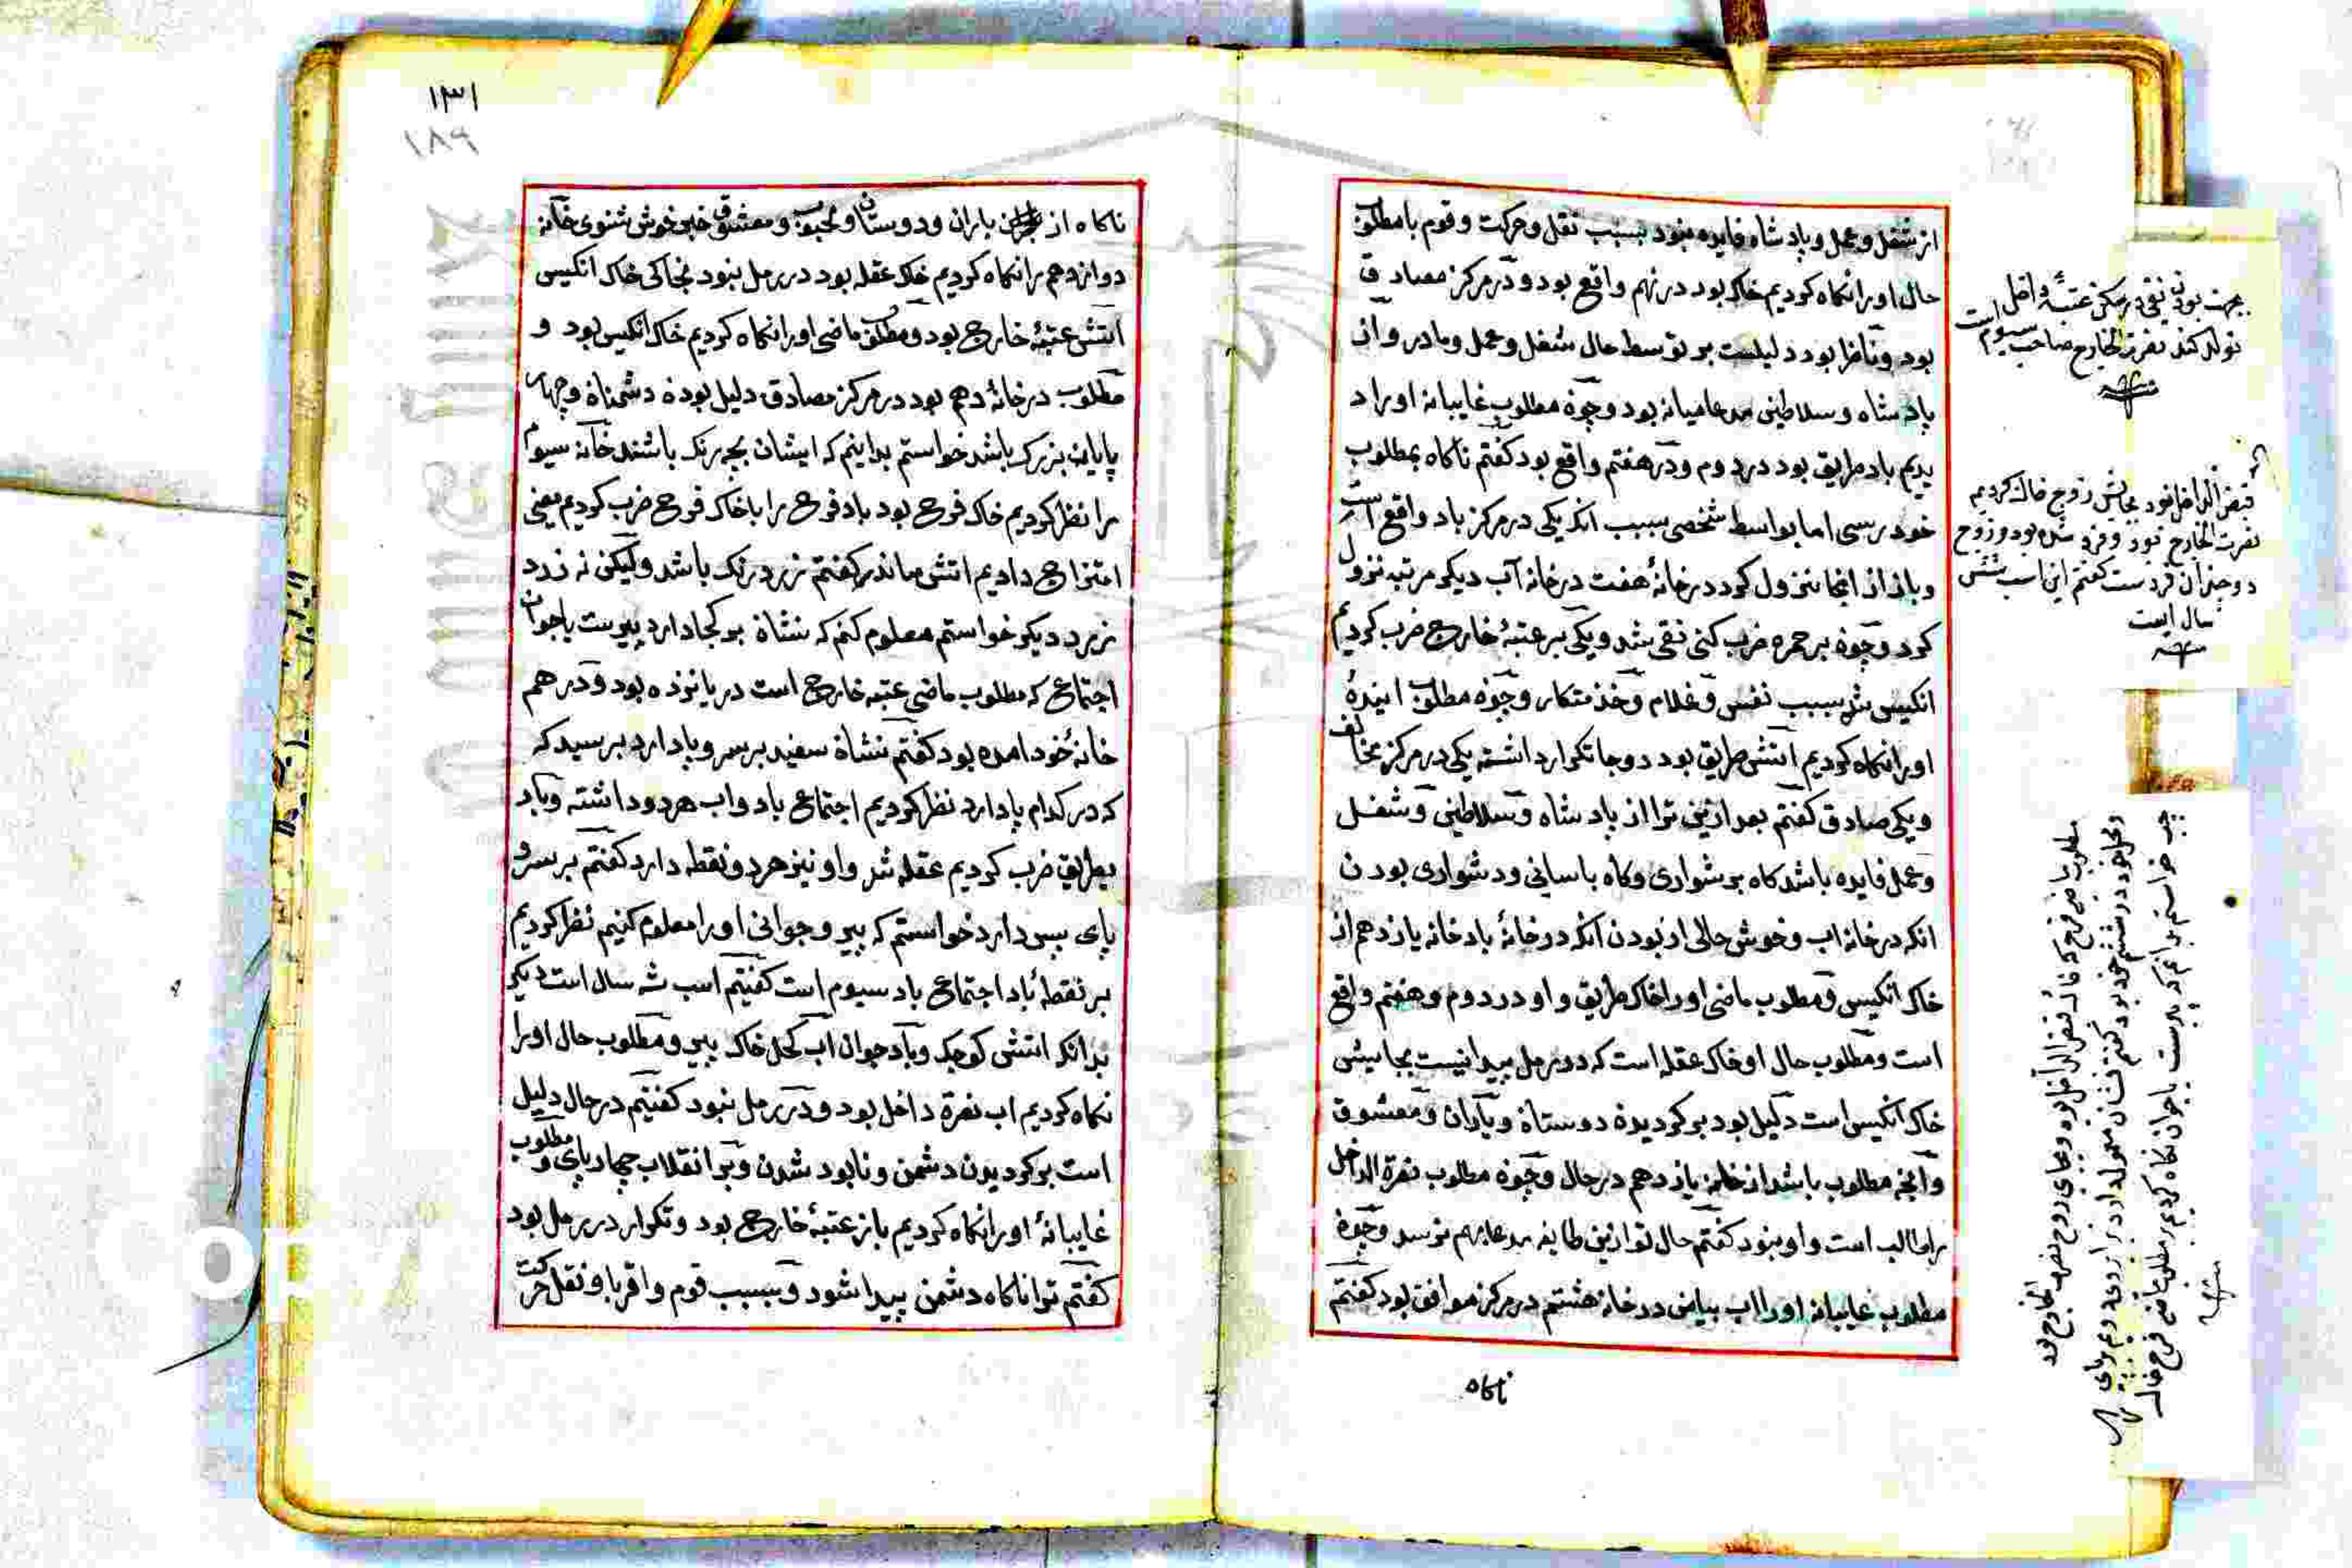 از شغل و عمل و بادشاه فایده نبود بسبب نقل و حرکت و قوم بامطلوب
حال اورا نکاه کردیم خاک بود در نهم واقع بود و در مرکز مصادق
بود و ناظر بود دلیلست بر توسط حال شغل و عمل و مادر و از
بادشاه و سلاطین مدعامیانه بود و چون مطلوب غایبانه اورا د
یدیم باد طریق بود در دوم و در هفتم واقع بود کفتم ناکاه بمطلوب
خود رسی اما بواسط شخصی بسبب انکه یکی در مرکز باد واقع است
و باز از انجا نزول کرد در خانهٔ هفت در خانه آب دیکر مرتبه نزول
کرد و چون بر حمره ضرب کنی نقی شد و یکی بر عتبهٔ خارج ضرب کردیم
انکیس شد بسبب نفس و غلام و خذمتکار و چون مطلوب ایندهٔ
اورا نکاه کردیم اتش طریق بود دو جا تکرار داشته یکی در مرکز مخالف
و یکی صادق کفتم بعد ازین ترا از باد شاه و سلاطین و شغل
و عمل فایده باشد کاه بر شواری و کاه باسانی و دشواری بودن
انکه در خانه اب و خوش حالی از بودن انکه در خانهٔ باد خانه یازدهم از
خاک انکیس و مطلوب ماضی اورا خاک طریق و او در دوم و هفتم واقع
است و مطلوب حال او خاک عقله است که در رمل پیدا نیست بجایش
خاک انکیس است دلیل بود بر کردیدن دوستان و یاران و معشوق
و آنچه مطلوب باشد از خانه یازدهم در حال و چون مطلوب نصرة الداخل
را طالب است و او نبود کفتم حال تو ازین طایفه مدعابهم نرسد و چون
مطلوب غایبانه اورا اب بیاض در خانه هشتم در مرکز موافق بود کفتم
ناکاه
بجهت بودن نقی در مرکز عتبهٔ داخل
تولد کند نصرة الخارج صاحب سیوم است
قبض الداخل نبود بجایش زوج خاک کردیم
نصرت الخارج بود و فرد شده بود و زوج
دو چندان فردست کفتم این اسب شش
سال است
۱۳۱
۱۸۹
ناکاه از یاران و دوستان و محبوب و معشوق خبر خوش شنوی خانه
دوازدهم را نکاه کردیم خاک عقله بود در رمل نبود بجاکی خاک انکیس
اتش عتبهٔ خارج بود و مطلوب ماضی اورا نکاه کردیم خاک انکیس بود و
مطلوب در خانهٔ دهم بود در مرکز مصادق دلیل بودن دشمنان و چهار
پایان بزرک باشد خواستم بدانیم که ایشان بچه رنک باشند خانه سیوم
را نظر کردیم خاک فرح بود باد فرح را با خاک فرح ضرب کردیم یعنی
امتزاج دادیم اتش ماند کفتم زرد رنک باشد ولیکن نه زرد
زرد دیکر خواستم معلوم کنم که نشان بر کجا دارد پیرست یا جوان
اجتماع که مطلوب ماضی عتبه خارج است در پانزده بود و در هم
خانهٔ خود امده بود کفتم نشان سفید بر سر و پا دارد برسید که
که در کدام پا دارد نظر کردیم اجتماع باد و اب هر دو داشته و باد
بطریق ضرب کردیم عقله شد و او نیز هر دو نقطه دارد کفتم بر سر و
پای پس دارد خواستم که پیر و جوانی اورا معلوم کنیم نظر کردیم
بر نقطهٔ باد اجتماع باد سیوم است کفتیم اسب سه سال است دیکر
بدانکه اتش کوچک و باد جوان اب کحل خاک پیر و مطلوب حال اورا
نکاه کردیم اب نصرة داخل بود و در رمل نبود کفتیم در حال دلیل
است بر کردیدن دشمن و نابود شدن و بر انقلاب چهار پای و مطلوب
غایبانهٔ اورا نکاه کردیم باز عتبهٔ خارج بود و تکرار در رمل بود
کفتم ترا ناکاه دشمن پیدا شود و بسبب قوم و اقربا و نقل حرکت